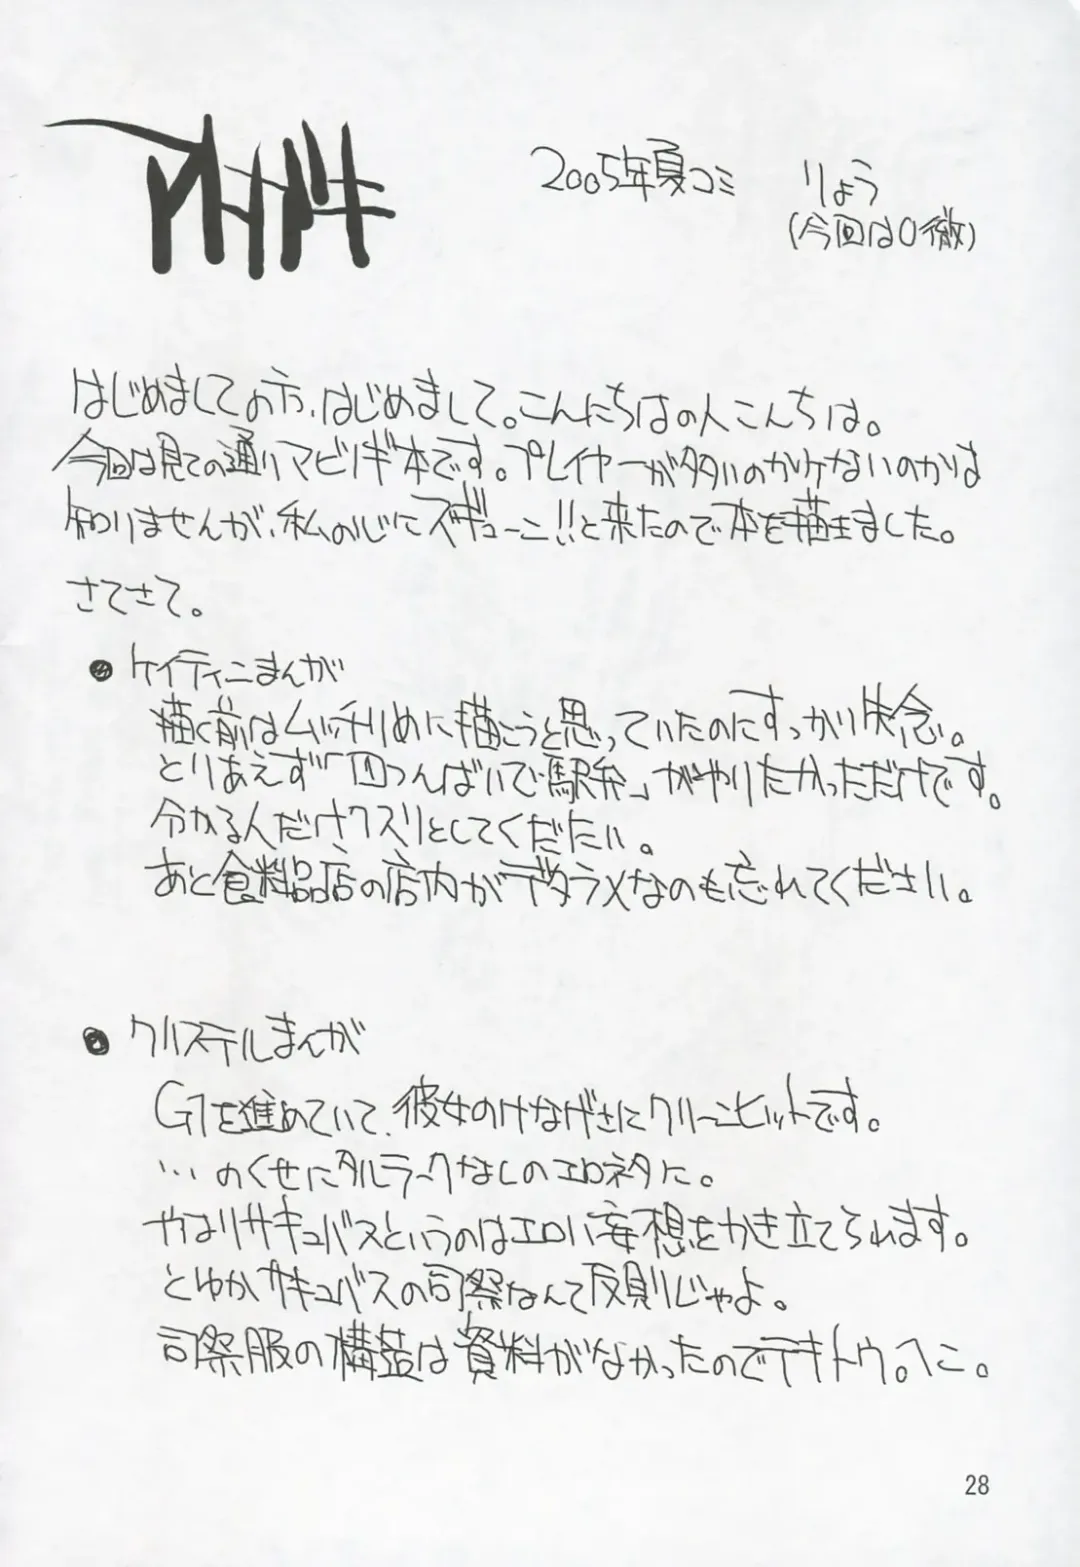 アトガキ
2005年夏コミ りょう
(今回は0徹)
はじめましての方、はじめまして。こんにちはの人こんちは。
今回は見ての通りマビノギ本です。プレイヤーが多いのか少ないのかは
知りませんが、私の心にズギューン!!と来たので本を描きました。
さてさて。
● ケイティンまんが
描く前はムッチリめに描こうと思っていたのにすっかり失念。
とりあえず「四つんばいで駅弁」がやりたかっただけです。
分かる人だけクスリとしてくだたい。
あと食料品店の店内がデタラメなのも忘れてください。
● クリステルまんが
G1を進めていて、彼女のけなげさにクリーンヒットです。
…のくせにタルラークなしのエロネタに。
やはりサキュバスというのはエロい妄想をかき立てられます。
とゆかサキュバスの司祭なんて反則じゃよ。
司祭服の構造は資料がなかったのでテキトウ。へこ。
28